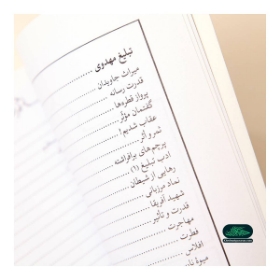 تبلیغ مهدوی
میراث جاویدان
قدرت رسانه
پرواز قطره‌ها
گفتمان مؤثر
عقاب شدیم!
ثمر و اثر
پرچم‌های برافراشته
ادب تبلیغ (۱)
رهایی از شیطان
نماد مرزبانی
شهید آفریقا
قدرت و تأثیر
مهاجرت
فطرت
افلاس
میوهٔ